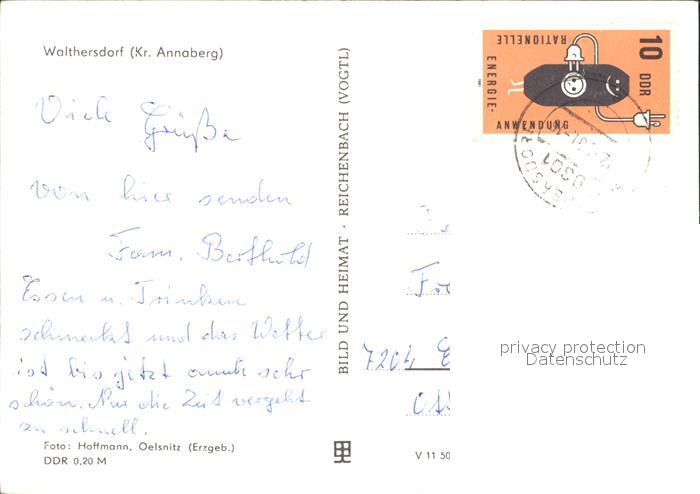 Walthersdorf (Kr. Annaberg)
Viele Grüße
von hier senden
Fam. Berthold
Essen u. Trinken
schmeckt und das Wetter
ist bis jetzt auch sehr
schön. Nur die Zeit vergeht
zu schnell.
Foto: Hoffmann, Oelsnitz (Erzgeb.)
DDR 0,20 M
BILD UND HEIMAT · REICHENBACH (VOGTL)
V 11 50
RATIONELLE
ENERGIE-
ANWENDUNG
10 DDR
1981
9301
7204
privacy protection
Datenschutz